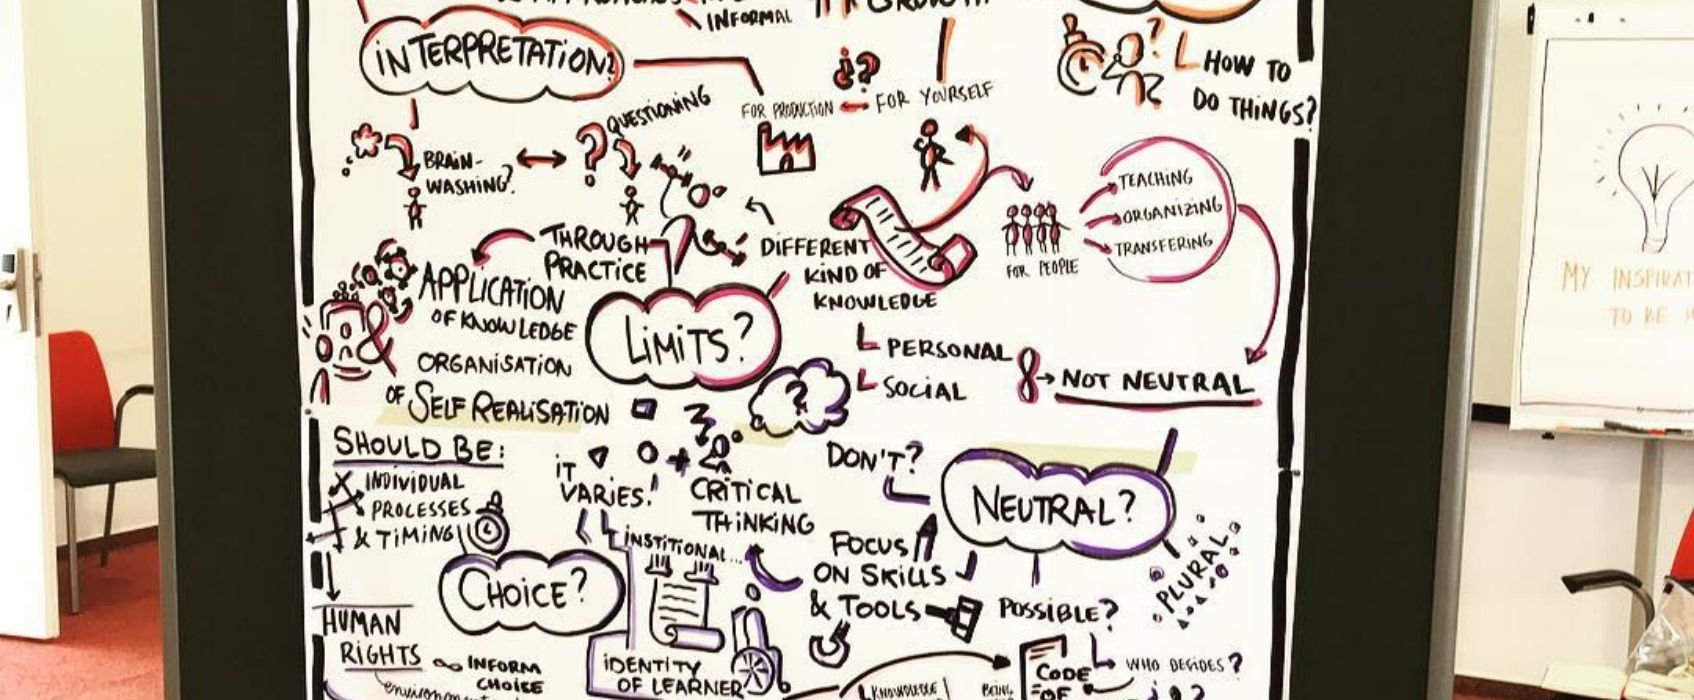 INFORMAL
GROWTH
INTERPRETATION?
HOW TO
DO THINGS?
QUESTIONING
FOR PRODUCTION
FOR YOURSELF
BRAIN-
WASHING?
TEACHING
ORGANIZING
TRANSFERING
FOR PEOPLE
THROUGH
PRACTICE
DIFFERENT
KIND OF
KNOWLEDGE
APPLICATION
OF KNOWLEDGE
LIMITS?
ORGANISATION
OF SELF REALISATION
PERSONAL
SOCIAL
NOT NEUTRAL
MY
TO BE
SHOULD BE:
INDIVIDUAL
PROCESSES
& TIMING
IT
VARIES!
CRITICAL
THINKING
DON'T?
NEUTRAL?
PLURAL
INSTITIONAL...
FOCUS
ON SKILLS
& TOOLS
POSSIBLE?
CHOICE?
HUMAN
RIGHTS
INFORM
CHOISE
IDENTITY
OF LEARNER
WHO DECIDES?
CODE
OF
KNOWLEDGE
BEING